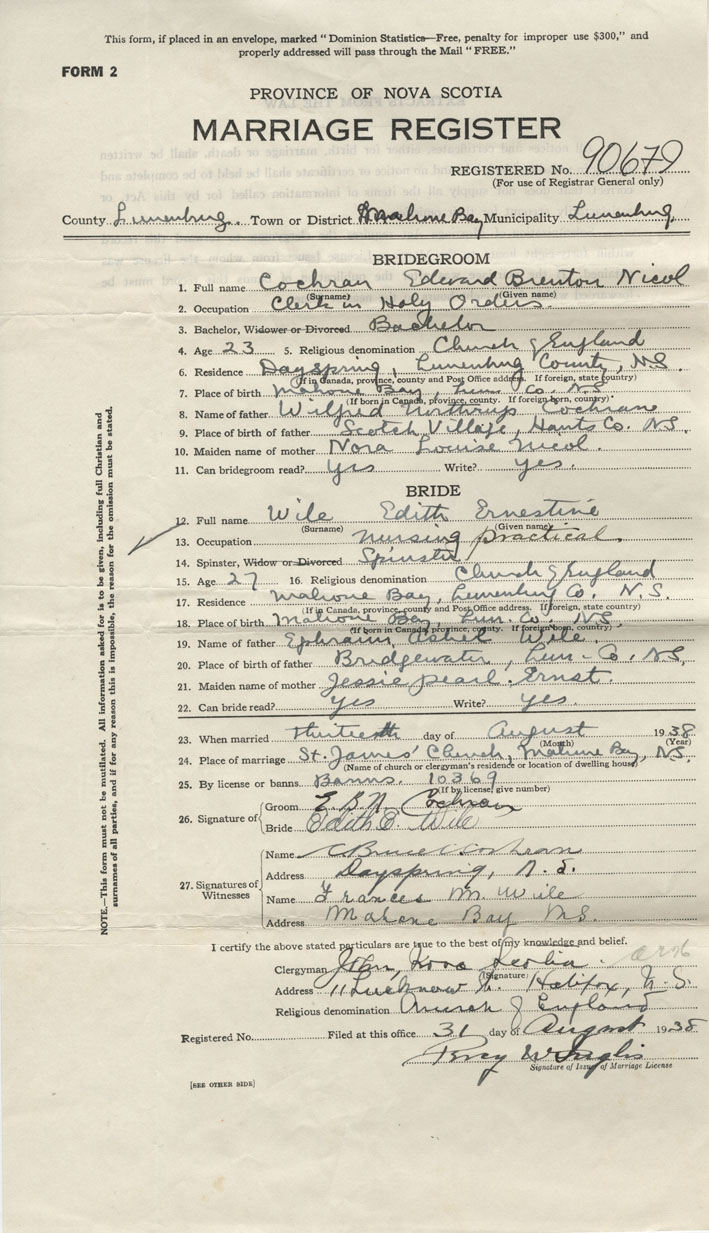 This form, if placed in an envelope, marked "Dominion Statistics—Free, penalty for improper use $300," and
properly addressed will pass through the Mail "FREE."
FORM 2
PROVINCE OF NOVA SCOTIA
MARRIAGE REGISTER
REGISTERED No. 90679
(For use of Registrar General only)
County Lunenburg Town or District Mahone Bay Municipality Lunenburg
BRIDEGROOM
1. Full name Cochran Edward Brenton Nicol
(Surname) (Given name)
2. Occupation Clerk in Holy Orders.
3. Bachelor, Widower or Divorced Bachelor
4. Age 23 5. Religious denomination Church of England
6. Residence Dayspring, Lunenburg County, N.S.
(If in Canada, province, county and Post Office address. If foreign, state country)
7. Place of birth Mahone Bay, Lun. Co. N.S.
(If born in Canada, province, county. If foreign born, country)
8. Name of father Wilfred Northrup Cochrane
9. Place of birth of father Scotch Village, Hants Co. N.S.
10. Maiden name of mother Nora Louise Nicol.
11. Can bridegroom read? yes Write? yes.
BRIDE
12. Full name Wile Edith Ernestine
(Surname) (Given name)
13. Occupation Nursing, practical
14. Spinster, Widow or Divorced Spinster
15. Age 27 16. Religious denomination Church of England
17. Residence Mahone Bay, Lunenburg Co. N.S.
(If in Canada, province, county and Post Office address. If foreign, state country)
18. Place of birth Mahone Bay, Lun. Co. N.S.
(If born in Canada, province, county. If foreign born, country)
19. Name of father Ephraim Wile.
20. Place of birth of father Bridgewater, Lun. Co. N.S.
21. Maiden name of mother Jessie Pearl Ernst.
22. Can bride read? yes Write? yes.
23. When married thirteenth day of August 1938
(Month) (Year)
24. Place of marriage St. James' Church, Mahone Bay, N.S.
(Name of church or clergyman's residence or location of dwelling house)
25. By license or banns Banns. 10369
(If by license, give number)
26. Signature of
Groom E.B.N. Cochran
Bride Edith E. Wile
27. Signatures of Witnesses
Name C Bruce Cochran
Address Dayspring, N.S.
Name Frances M. Wile
Address Mahone Bay N.S.
I certify the above stated particulars are true to the best of my knowledge and belief.
Clergyman John
(Signature)
Address 11 Lucknow St. Halifax, N.S.
Religious denomination Church of England
Registered No. Filed at this office 31 day of August 1938
Percy
Signature of Issuer of Marriage License
[SEE OTHER SIDE]
NOTE.—This form must not be mutilated. All information asked for is to be given, including full Christian and
surnames of all parties, and if for any reason this is impossible, the reason for the omission must be stated.